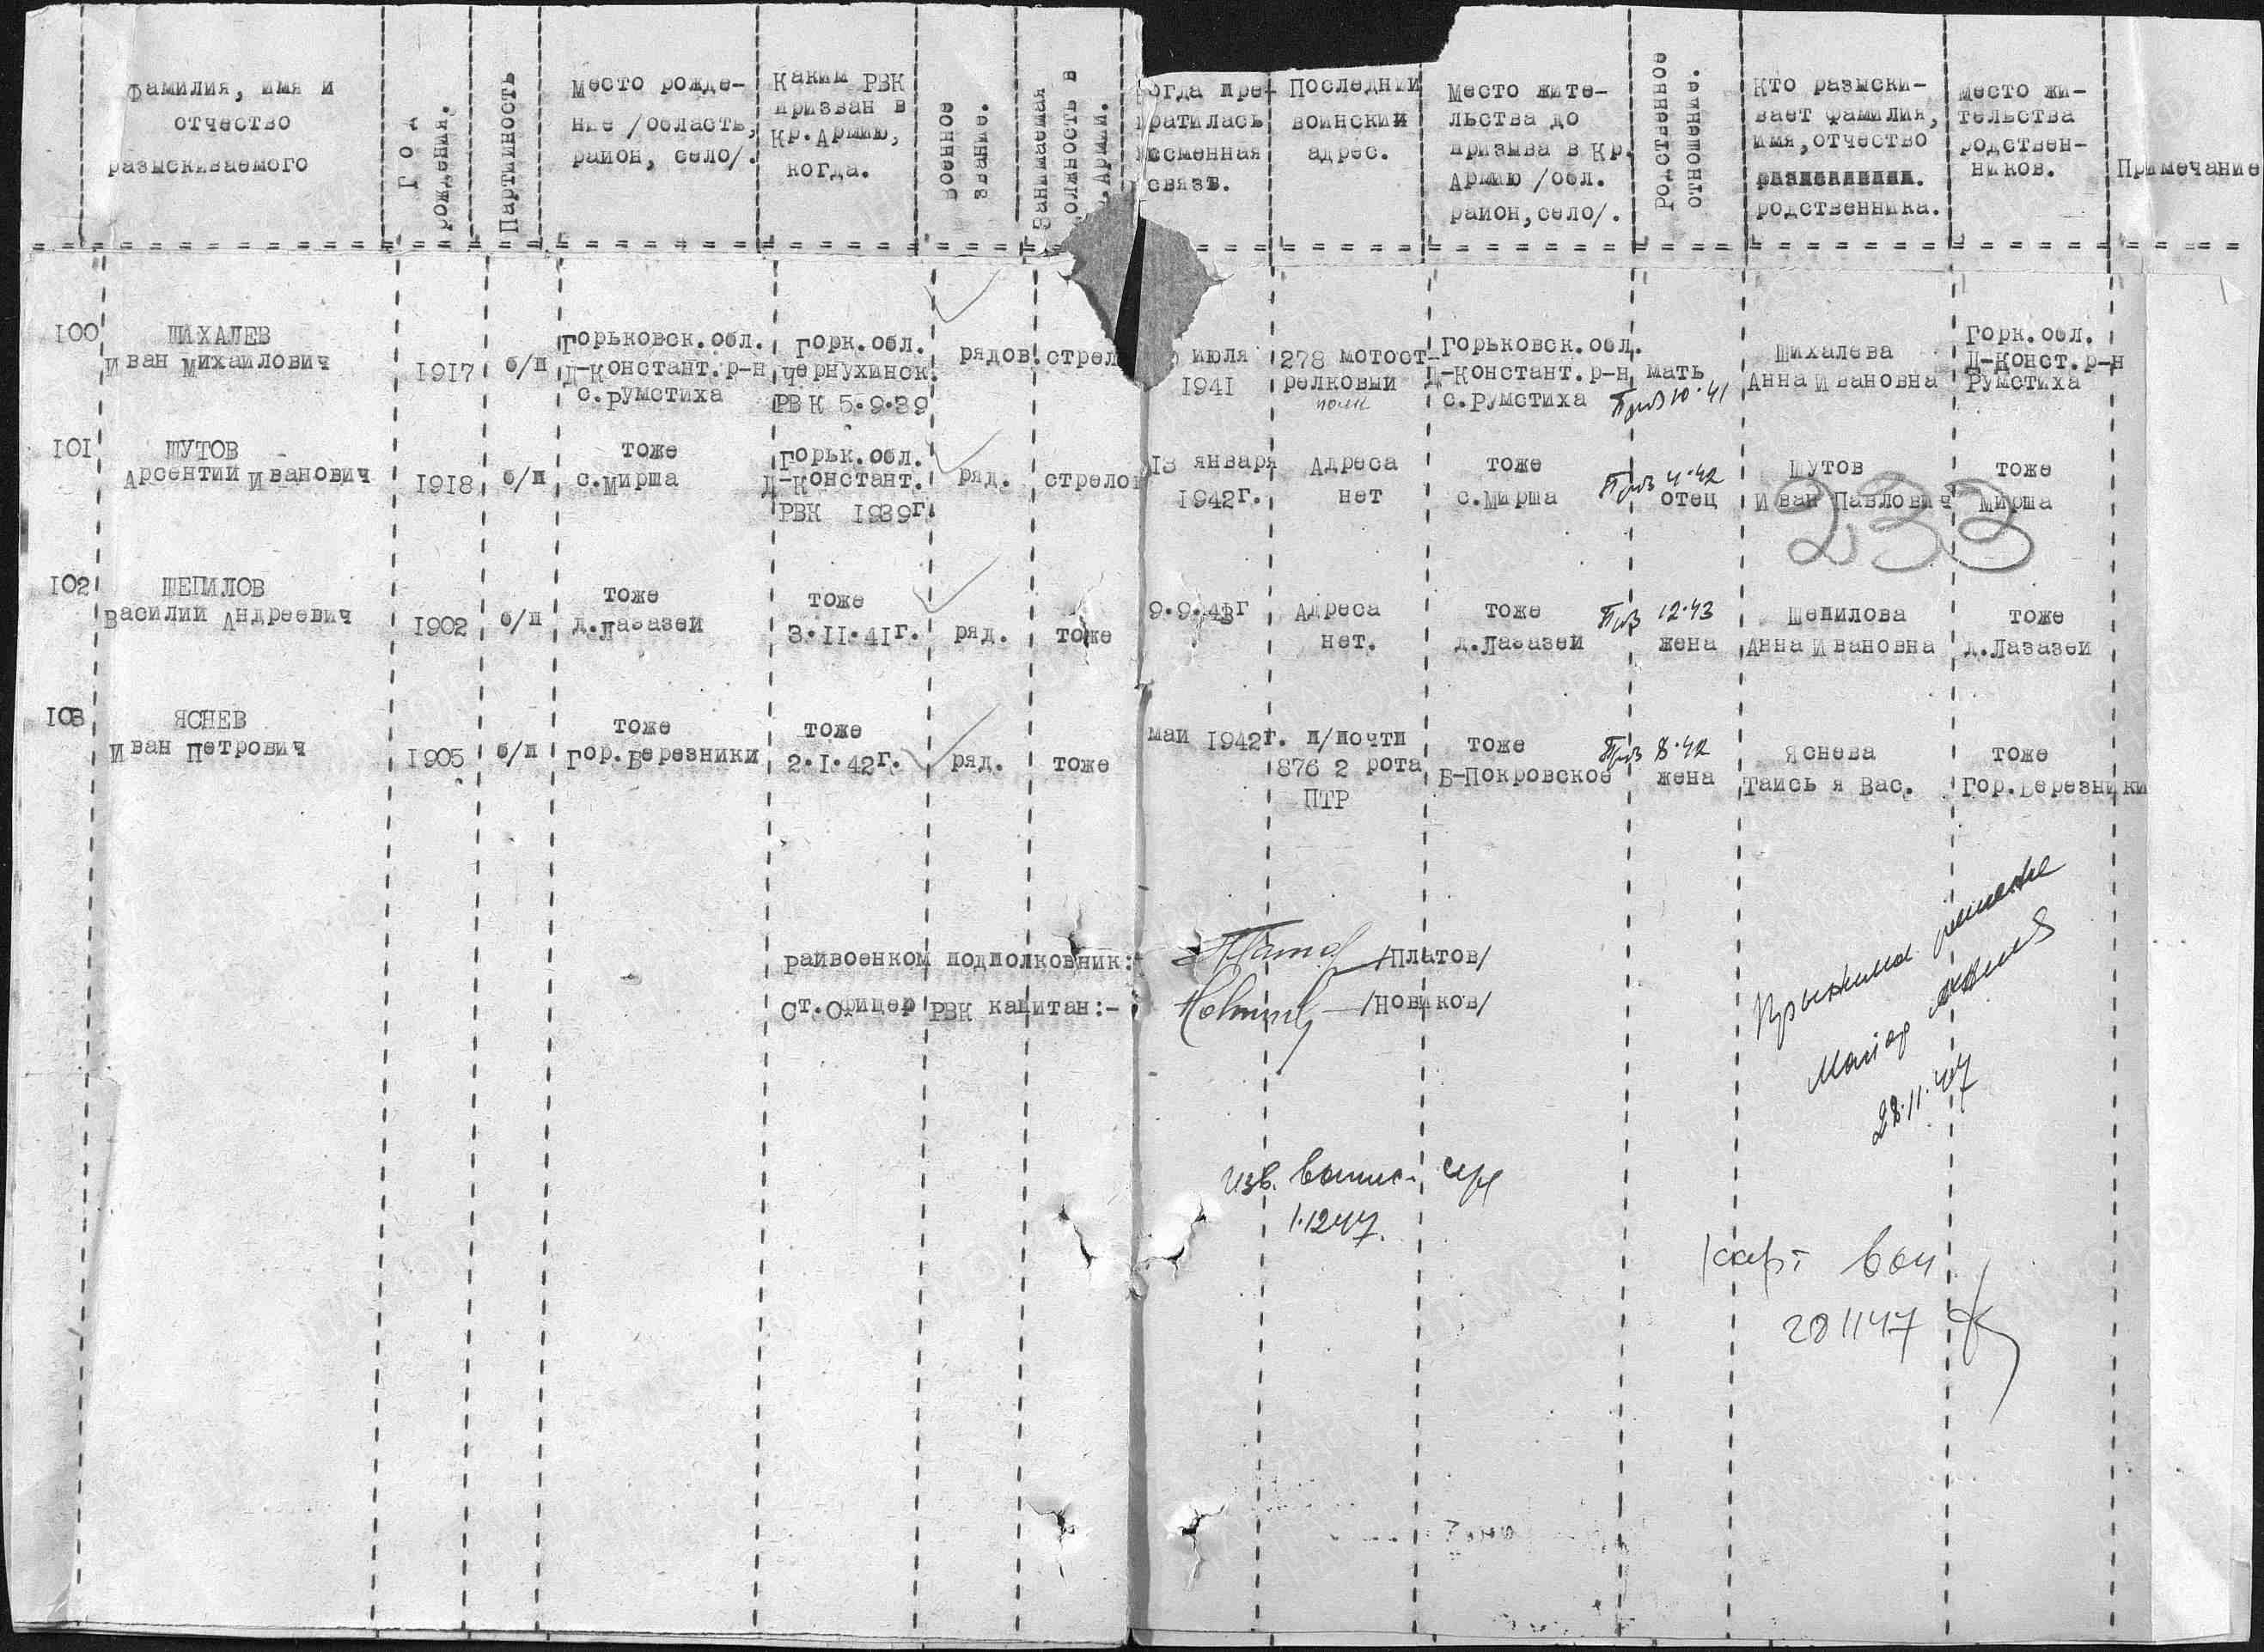 Фамилия, имя и
отчество
разыскиваемого
Год
рождения.
Партийность
Место рожде-
ние /область,
район, село/.
Каким РВК
призван в
Кр.Армию,
когда.
Военное
звание.
Занимаемая
должность в
Армии.
огда пре-
ратилась
сьменная
связь.
Последний
воинский
адрес.
Место жите-
льства до
призыва в Кр.
Армию /обл.
район,село/.
Родственное
отношение.
Кто разыски-
вает фамилия,
имя,отчество
родственника.
Место жи-
тельства
родствен-
ников.
Примечание
100
ШИХАЛЕВ
Иван Михайлович
1917
б/п
Горьковск.обл.
Д-Констант.р-н
с.Румстиха
Горк.обл.
Чернухинск.
РВК 5.9.39
рядов.
стрел
июля
1941
278 мотост-
релковый
полк
Горьковск.обл.
Д-Констант.р-н
с.Румстиха
мать
Приз 10.41
Шихалева
Анна Ивановна
Горк.обл.
Д-Конст.р-н
Румстиха
101
ШУТОВ
Арсентий Иванович
1918
б/п
тоже
с.Мирша
Горьк.обл.
Д-Констант.
РВК 1939г.
ряд.
стрелок
13 января
1942г.
Адреса
нет
тоже
с.Мирша
Приз 4.42
отец
Шутов
Иван Павлович
тоже
Мирша
233
102
ШЕПИЛОВ
Василий Андреевич
1902
б/п
тоже
д.Лазазей
тоже
3.11.41г.
ряд.
тоже
9.9.43г
Адреса
нет.
тоже
д.Лазазей
Приз 12.43
жена
Шепилова
Анна Ивановна
тоже
д.Лазазей
103
ЯСНЕВ
Иван Петрович
1905
б/п
тоже
Гор.Березники
тоже
2.1.42г.
ряд.
тоже
май 1942г.
п/почта
876 2 рота
ПТР
тоже
Б-Покровское
Приз 8.42
жена
Яснева
Таисья Вас.
тоже
Гор.Березники
Райвоенком подполковник:-
/Платов/
Ст.Офицер РВК капитан:-
/Новиков/
Майор
28.11.47
изв.
1.12 47.
карт
28 11 47